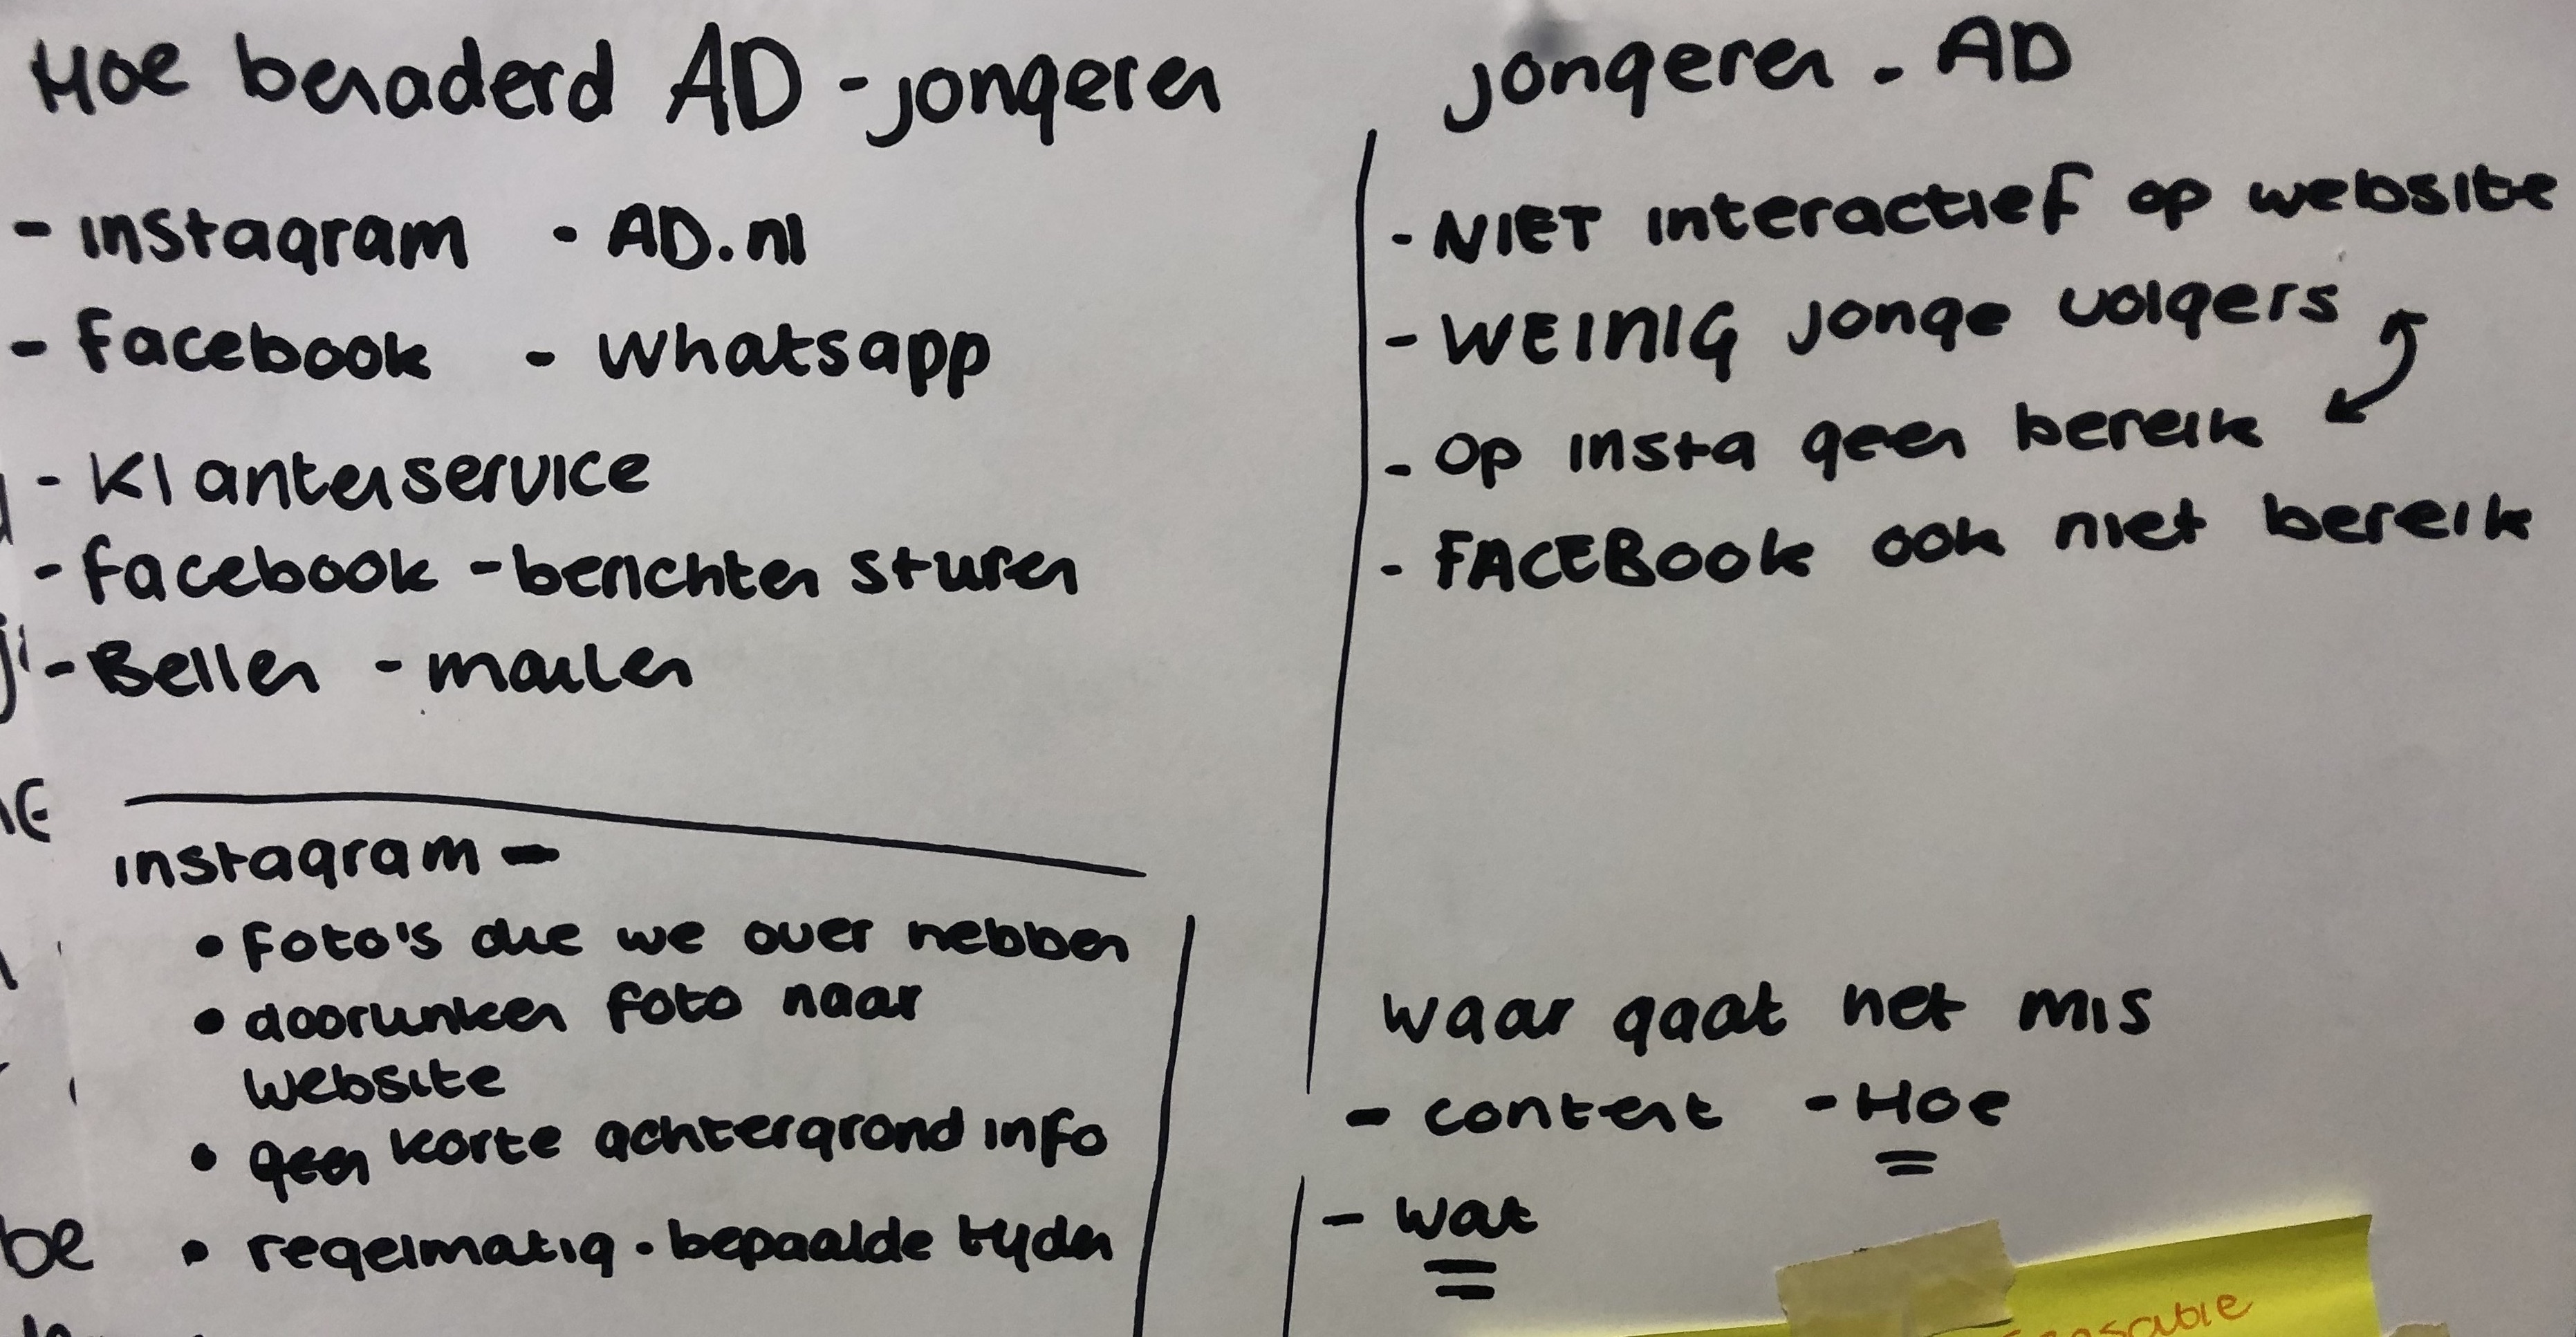 Hoe benaderd AD - jongeren
- instagram - AD.nl
- facebook - whatsapp
- Klantenservice
- facebook - berichten sturen
- Bellen - mailen
instagram -
• foto's die we over hebben
• doorlinken foto naar
website
• geen korte achtergrond info
• regelmatig • bepaalde tijden
jongeren - AD
- NIET interactief op website
- WEINIG jonge volgers
- op insta geen bereik
- FACEBook ook niet bereik
waar gaat het mis
- content - Hoe
- wat
be